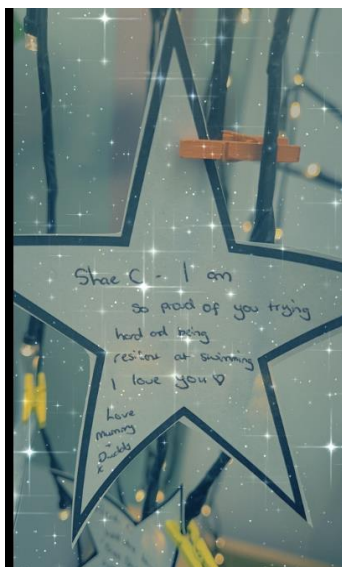 Shae C - I am
so proud of you trying
hard and being
resilient at swimming
I love you ♡
Love
Mummy
Daddy
x